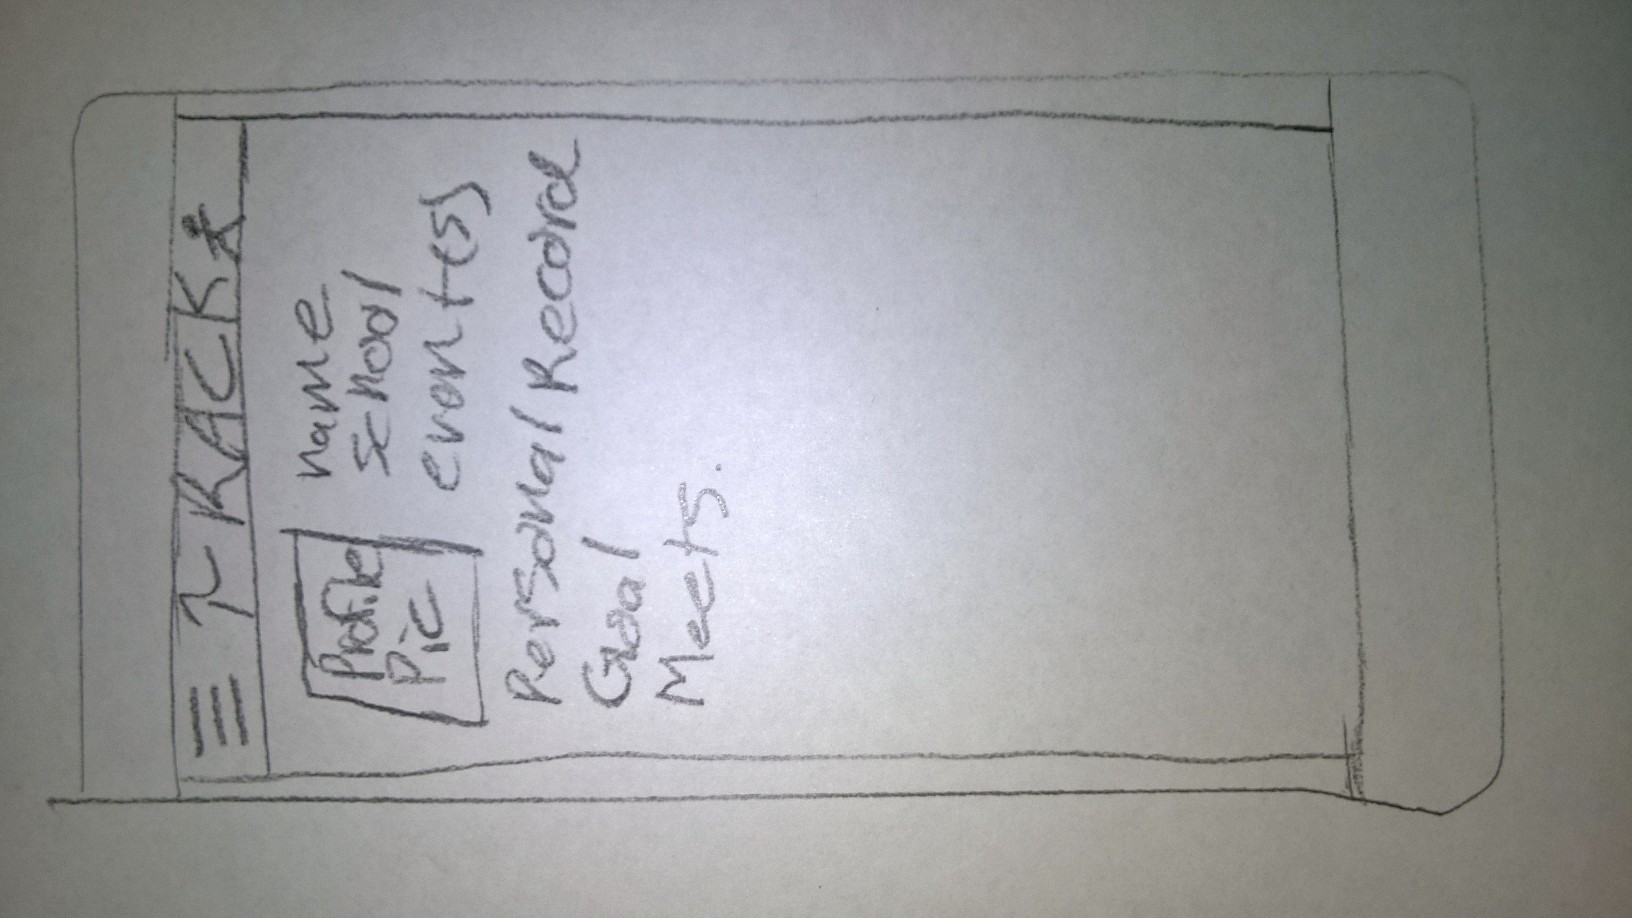 TRACK
Profile
Pic
name
school
event(s)
Personal Record
Goal
Meets.